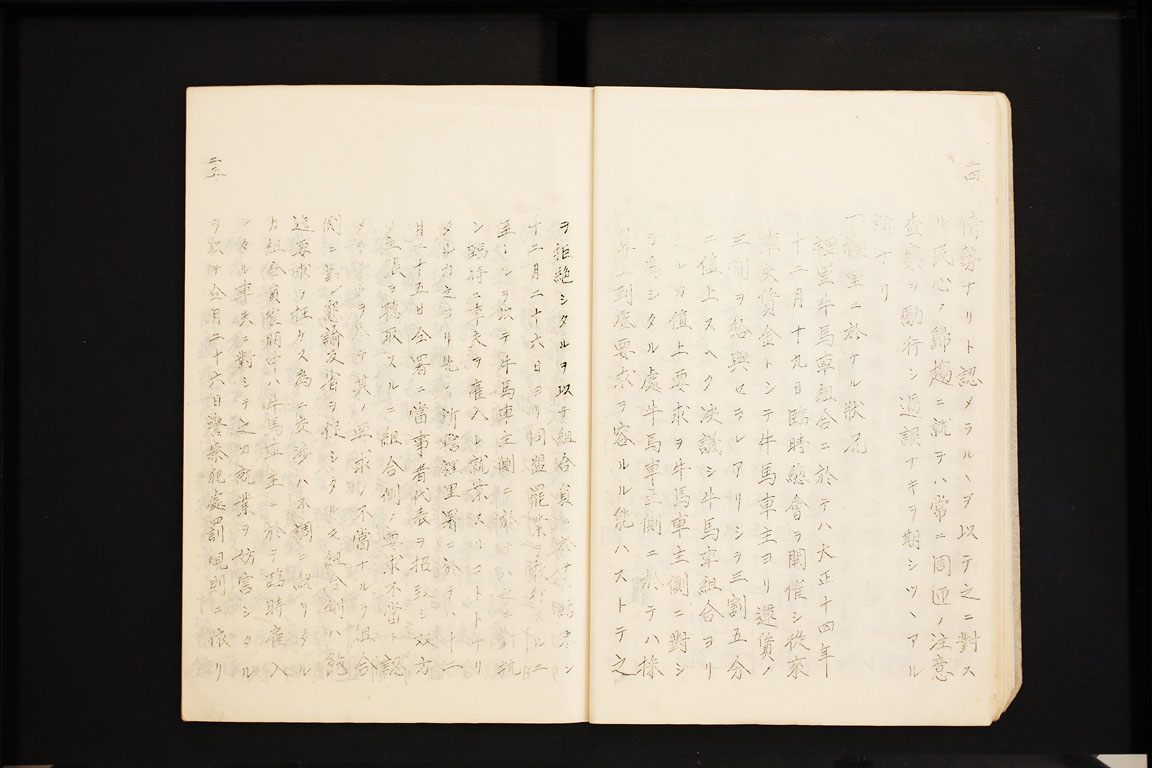 二四
情勢ナリト認メラルヽヲ以テ之ニ對ス
ル民心ノ歸趨ニ就テハ常ニ周匝ノ注意
査察ヲ勵行シ過誤ナキヲ期シツヽアル
所ナリ
一、裡里ニ於ケル狀况
裡里牛馬車組合ニ於テハ大正十四年
十二月十九日臨時總會ヲ開催シ從來
車夫賃金トシテ牛馬車主ヨリ運賃ノ
三割ヲ給與セラレアリシヲ三割五分
ニ値上スヘク決議シ牛馬車組合ヨリ
之レカ値上要求ヲ牛馬車主側ニ對シ
為シタル處牛馬車主側ニ於テハ採
到底要求ヲ容ルル能ハストテ之
二五
ヲ拒絶シタルヲ以テ組合員ニ於テ
十二月二十六日ヨリ同盟罷業
至リシヲ以テ牛馬車主側ニ於
車夫ヲ雇入レ就業スルコトトナリ
裡里署ニ於テハ十二
月二十五日仝署ニ當事者代表ヲ招致シ双方
ノ主張ヲ聽取スルニ組合側ノ要求不當ト認
メ其ノ要求ノ不當ナルヲ組合
側ニ對シ懇諭反省ヲ促シタルモ組合側ハ
要求ヲ枉ケス為ニ交渉ハ不調ニ終リタル
カ組合員裴明守ハ牛馬車主ニ於テ臨時雇入
レタル車夫ニ對シテ之カ就業ヲ妨害シタル
ヲ以テ仝月二十六日警察犯處罰規則ニ依リ